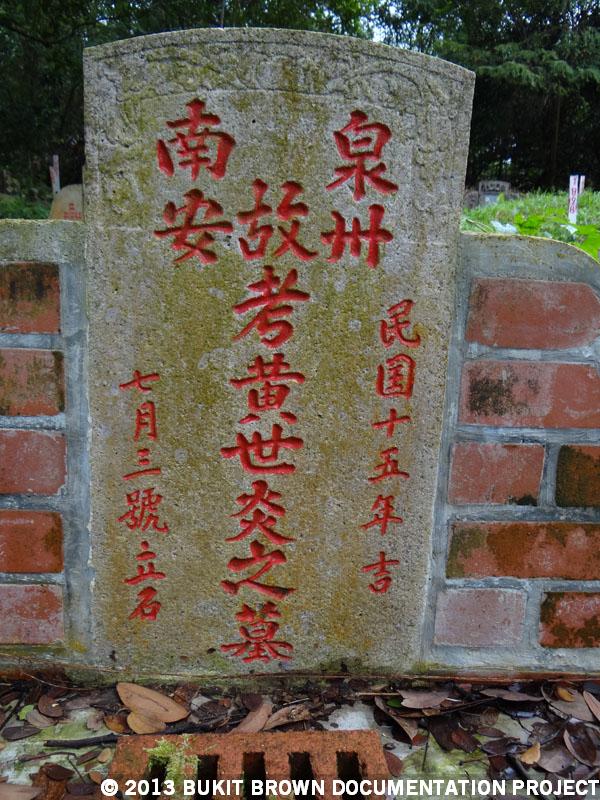 泉州
南安
民国十五年吉
故考黄世炎之墓
七月三號立石
© 2013 BUKIT BROWN DOCUMENTATION PROJECT